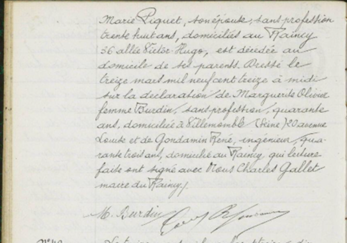 Marie Piquet, son épouse, sans profession
trente huit ans, domiciliés au Raincy
56 allée Victor Hugo, est décédée au
domicile de ses parents. Dressé le
treize mars mil neuf cent treize à midi
sur la déclaration de Marguerite
femme Burdin, sans profession, quarante
ans, domiciliée à Villemomble (Seine)
Louis et de Gondamin René, ingénieur, qua-
rante trois ans, domicilié au Raincy, qui lecture
faite ont signé avec Nous Charles Gallet
maire du Raincy.
M. Burdin